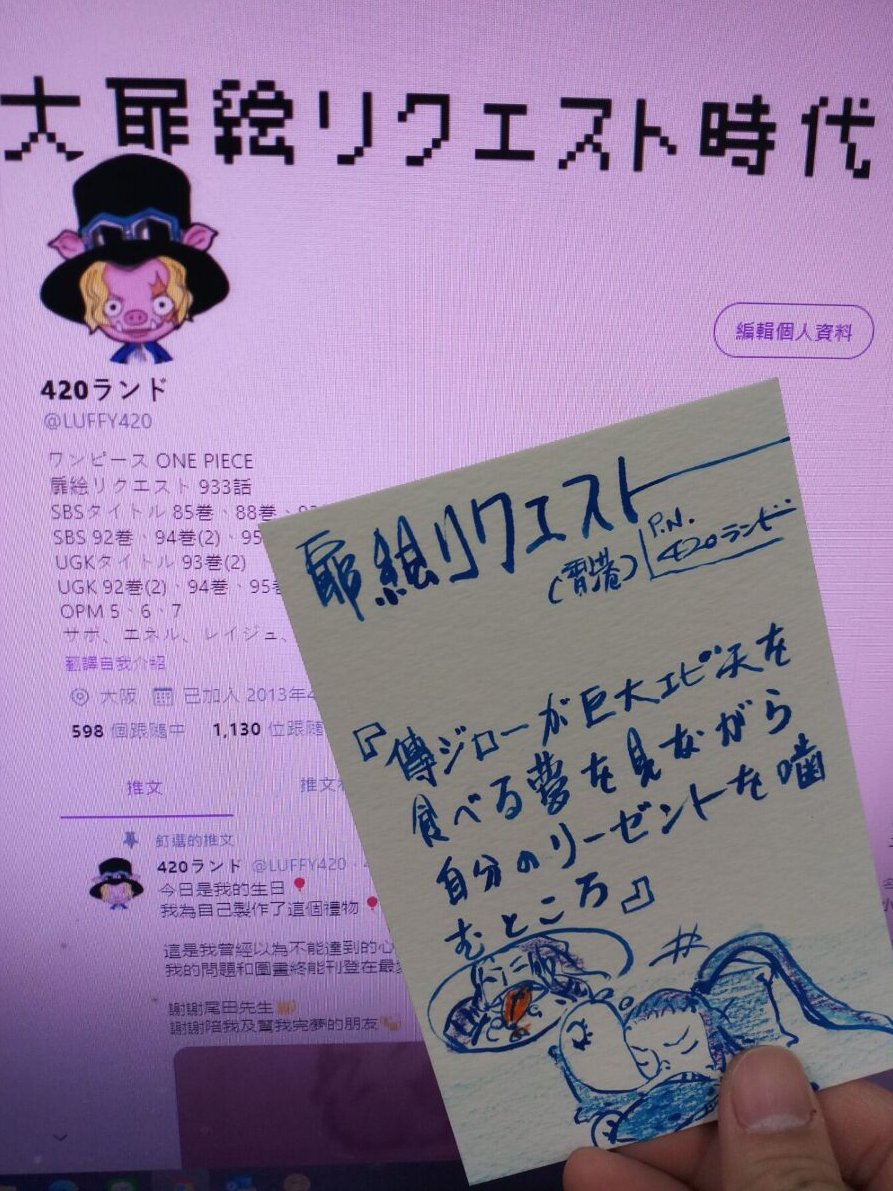 大扉絵リクエスト時代
編輯個人資料
420ランド
@LUFFY420
ワンピース ONE PIECE
扉絵リクエスト 933話
SBSタイトル 85巻、88巻、
SBS 92巻、94巻(2)、95
UGKタイトル 93巻(2)
UGK 92巻(2)、94巻、95巻
OPM 5、6、7
サボ、エネル、レイジュ、
翻譯自我介紹
大阪 已加入 2013年4
598 個跟隨中 1,130 位跟隨
推文 推文
釘選的推文
420ランド @LUFFY420
今日是我的生日
我為自己製作了這個禮物
這是我曾經以為不能達到的心
我的問題和圖畫終能刊登在最
謝謝尾田先生
謝謝陪我及幫我完夢的朋友
扉絵リクエスト
(香港) P.N. 420ランド
『傳ジローが巨大エビ天を
食べる夢を見ながら
自分のリーゼントを噛
むところ』